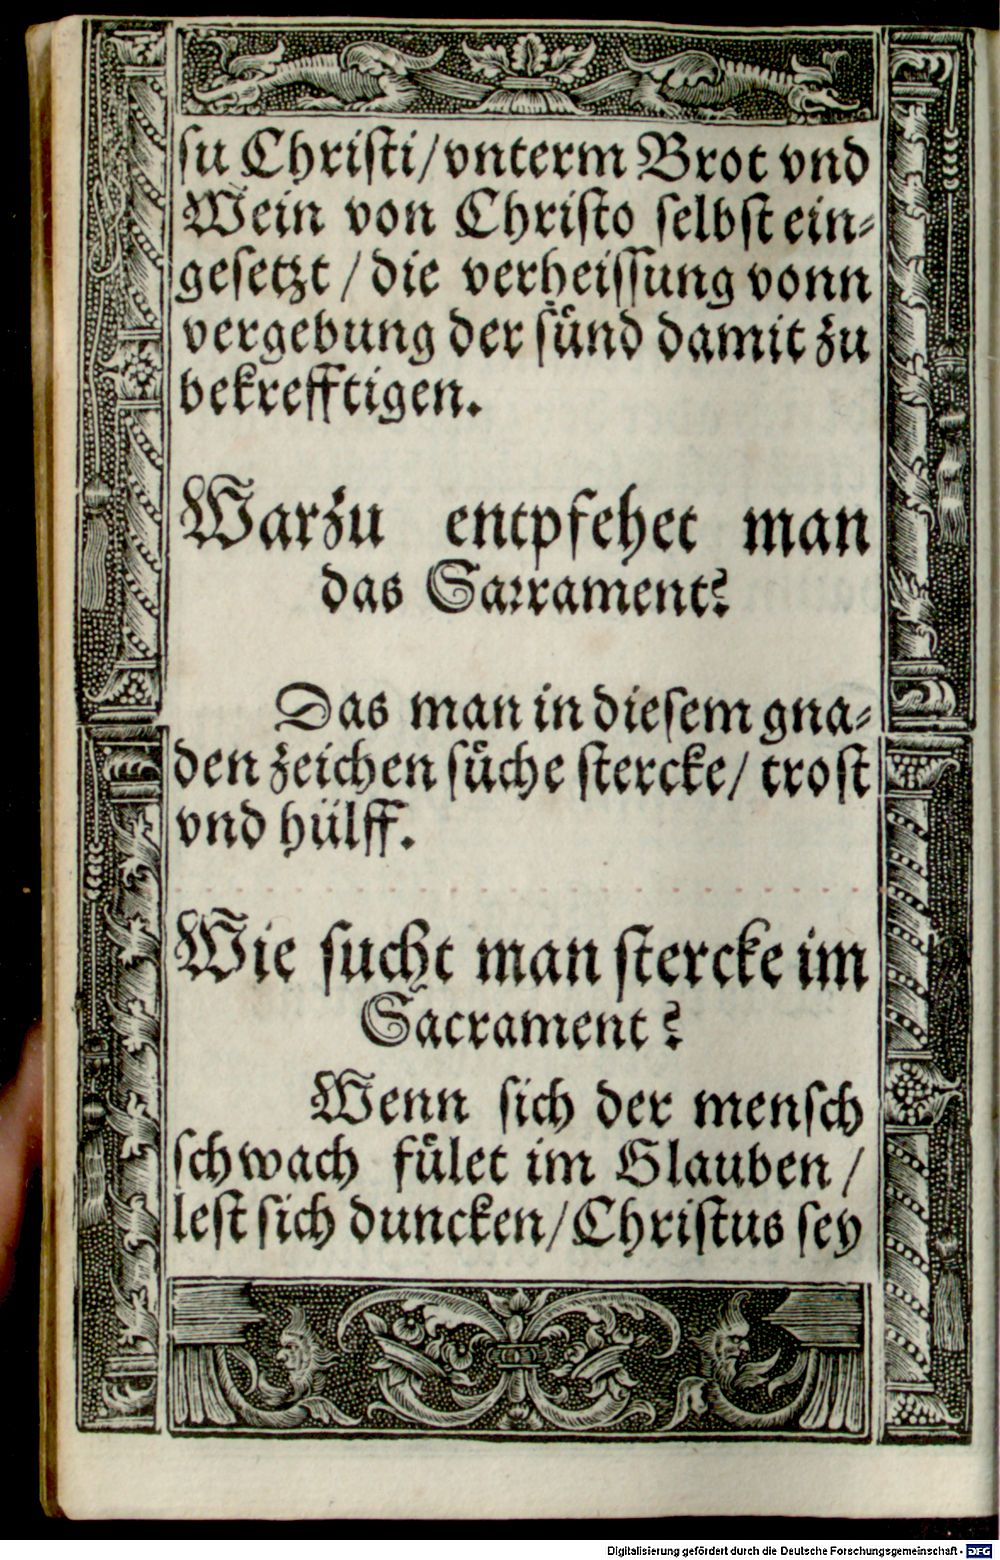 su Christi / vnterm Brot vnd
Wein von Christo selbst ein⸗
gesetzt / die verheissung vonn
vergebung der suͤnd damit zu
bekrefftigen.
Warzu entpfehet man
das Sacrament?
Das man in diesem gna⸗
den zeichen suͤche stercke / trost
vnd huͤlff.
Wie sucht man stercke im
Sacrament?
Wenn sich der mensch
schwach fuͤlet im Glauben /
lest sich duncken / Christus sey
Digitalisierung gefördert durch die Deutsche Forschungsgemeinschaft - DFG